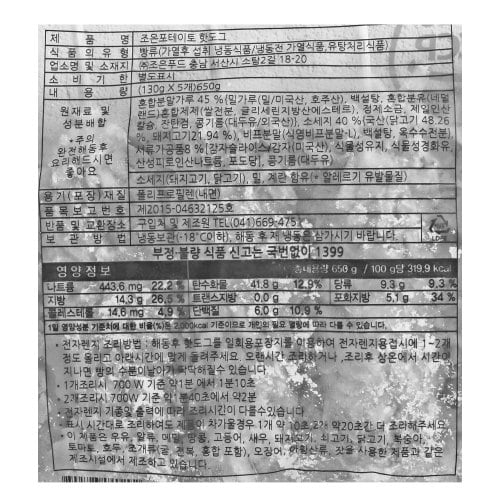 제 품 명 조은포테이토 핫도그
식 품 의 유 형 빵류(가열후 섭취 냉동식품/냉동전 가열식품,유탕처리식품)
업소명 및 소재지 ㈜조은푸드 충남 서산시 소탐2길 18-20
소 비 기 한 별도표시
내 용 량 (130g X 5개)650g
원재료 및 성분배합
•주의
완전해동후
요리해드시면
좋아요
혼합분말가루 45 %(밀가루(밀/미국산, 호주산), 백설탕, 혼합분유(네덜
란드)혼합제제(쌀전분, 글리세린지방산에스테르), 정제소금, 제일인산
칼슘, 잔탄검, 콩기름(대두유/외국산)), 소세지 40 %(국산(닭고기 48.26
%, 돼지고기21.94 %), 비프분말(식염비프분말-L), 백설탕, 옥수수전분),
서류가공품8 %(감자슬라이스/감자(미국산), 식물성유지, 식물성경화유,
산성피로인산나트륨, 포도당), 콩기름(대두유)
소세지(돼지고기, 닭고기), 밀, 계란 함유(* 알레르기 유발물질)
용기(포장)재질 폴리프로필렌(내면)
품목보고번호 제2015-04632125호
반품 및 교환장소 구입처 및 제조원 TEL(041)669-475
보 관 방 법 냉동보관(-18°C이하), 해동 후 재 냉동은 삼가시기 바랍니다.
부정·불량 식품 신고는 국번없이 1399
영양정보 총내용량 650 g / 100 g당 319.9 kcal
나트륨 443.6 mg 22.2 % 탄수화물 41.8 g 12.9% 당류 9.3 g 9.3 %
지방 14.3 g 26.5 % 트랜스지방 0.0 g 포화지방 5.1 g 34 %
콜레스테롤 14.6 mg 4.9 % 단백질 6.0 g 10.9 %
1일 영양성분 기준치에 대한 비율(%)은 2,000kcal 기준이므로 개인의 필요 열량에 따라 다를 수 있습니다.
• 전자렌지 조리방법 : 해동후 핫도그를 일회용포장지를 이용하여 전자렌지용접시에 1~2개
정도 올리고 아래시간에 맞게 돌려주세요. 오랜시간 조리하거나 ,조리후 상온에서 시간이
지나면 빵의 수분이날아가 딱딱해질수 있습니다.
• 1개조리시 700W 기준 약1분 에서 1분10초
• 2개조리시 700W 기준 약1분40초에서 약2분
• 전자렌지 기종및 출력에 따라 조리시간이 다를수있습니다
• 표시 시간대로 조리하여도 제품이 차가울경우 1개 약 10초 2개 약20초간 더 조리해주세요.
• 이 제품은 우유, 알류, 메밀, 땅콩, 고등어, 새우, 돼지고기, 쇠고기, 닭고기, 복숭아,
토마토, 호두, 조개류(굴, 전복, 홍합 포함), 오징어, 아황산류, 잣을 사용한 제품과 같은
제조시설에서 제조하고 있습니다.